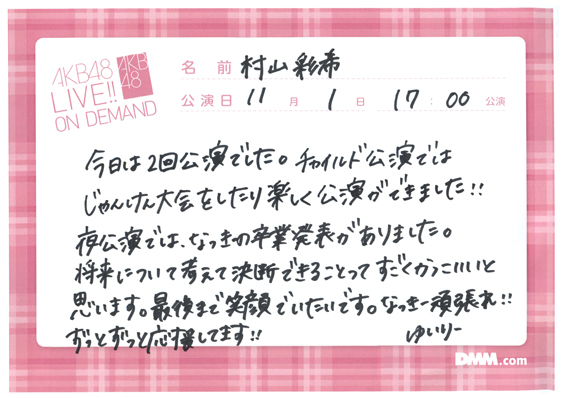 AKB48
LIVE!!
ON DEMAND
AKB
48
名 前 村山彩希
公演日 11 月 1 日 17:00 公演
今日は2回公演でした。チャイルド公演では
じゃんけん大会をしたり楽しく公演ができました!!
夜公演では、なっきの卒業発表がありました。
将来について考えて決断できることってすごくかっこいいと
思います。最後まで笑顔でいたいです。なっきー頑張れ!!
ずっとずっと応援してます!! ゆいりー
DMM.com